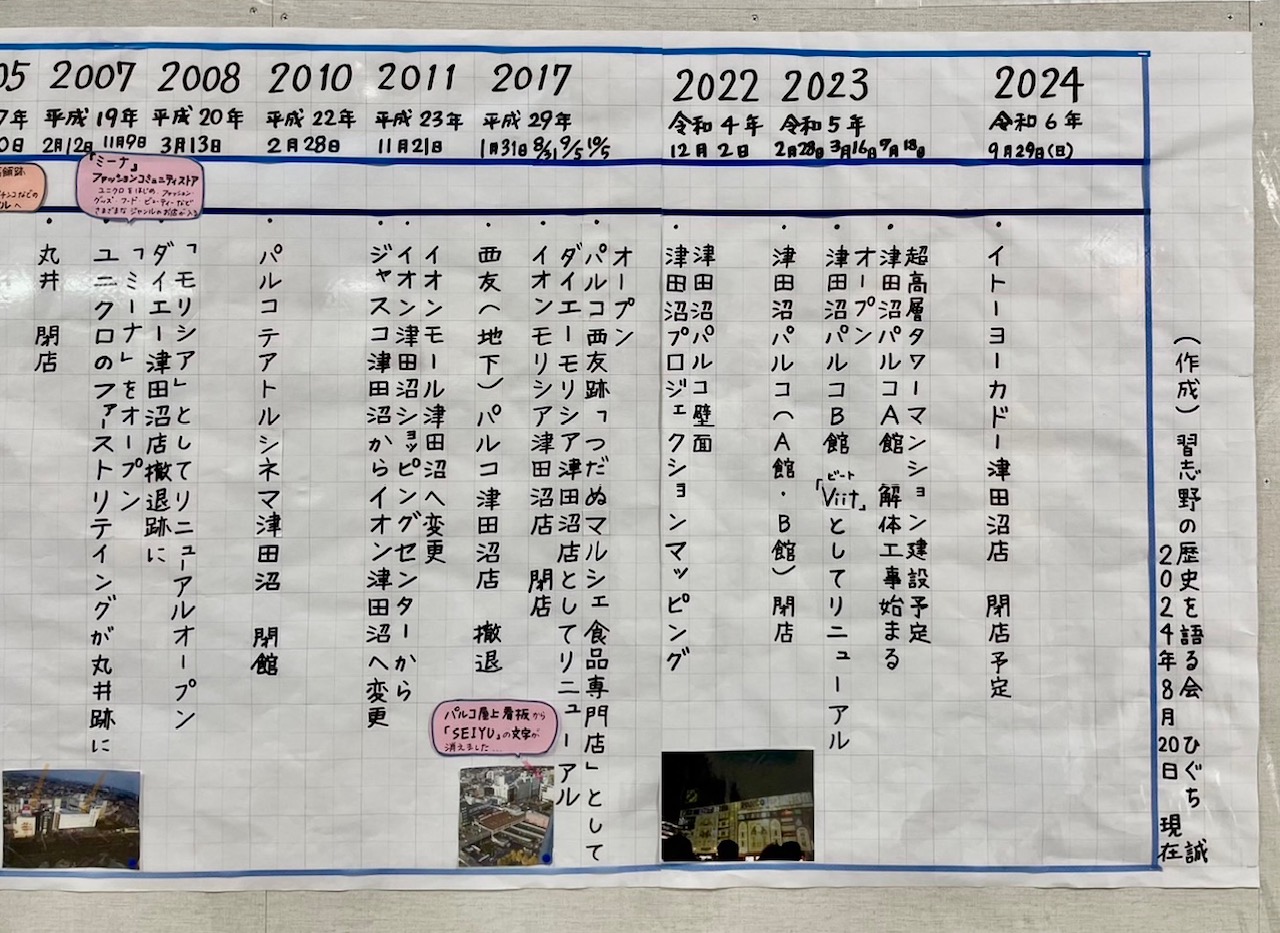 05
7年
0日
2007
平成19年
2月12日 11月9日
2008
平成20年
3月13日
2010
平成22年
2月28日
2011
平成23年
11月21日
2017
平成29年
1月31日 8/31 9/5 10/5
2022
令和4年
12月2日
2023
令和5年
2月28日 3月16日 7月18日
2024
令和6年
9月29日(日)
「ミーナ」
ファッションコミュニティストア
ユニクロをはじめ、ファッション・
グッズ・フード・ビューティーなど
さまざまなジャンルのお店が入る
・丸井 閉店
・ユニクロのファーストリテイリングが丸井跡に
「ミーナ」をオープン
・ダイエー津田沼店撤退跡に
「モリシア」としてリニューアルオープン
・パルコテアトルシネマ津田沼 閉館
・ジャスコ津田沼からイオン津田沼へ変更
・イオン津田沼ショッピングセンターから
イオンモール津田沼へ変更
・西友(地下)パルコ津田沼店 撤退
・イオンモリシア津田沼店 閉店
・ダイエーモリシア津田沼店としてリニューアル
・パルコ西友跡「つだぬマルシェ食品専門店」として
オープン
・津田沼プロジェクションマッピング
津田沼パルコ壁面
・津田沼パルコ(A館・B館)閉店
・津田沼パルコB館「Viit」としてリニューアル
ビート
オープン
・津田沼パルコA館 解体工事始まる
超高層タワーマンション建設予定
・イトーヨーカドー津田沼店 閉店予定
パルコ屋上看板から
「SEIYU」の文字が
消えました...
(作成)習志野の歴史を語る会 ひぐち 誠
2024年8月20日 現在